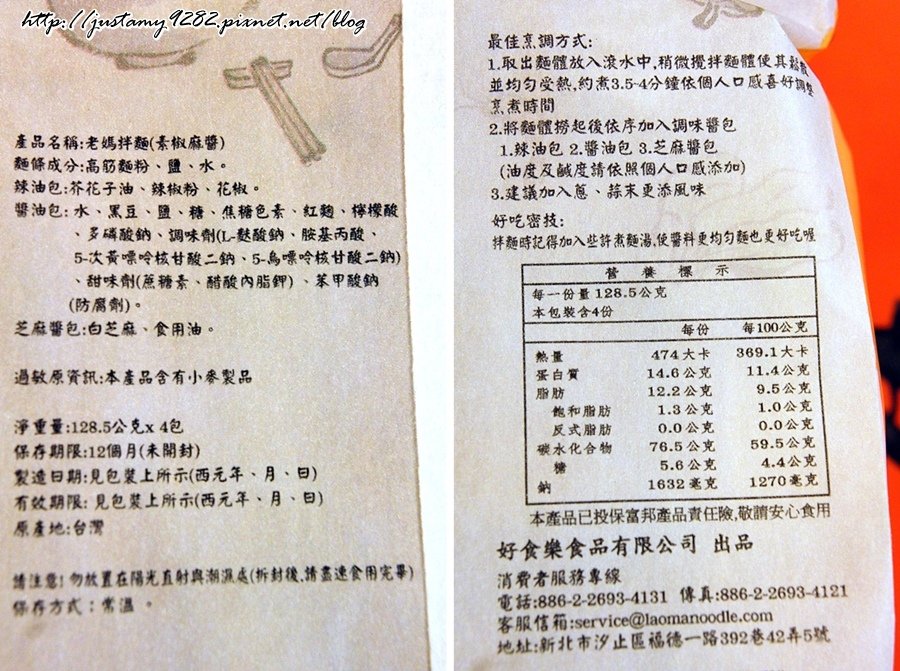 http://justamy9282.pixnet.net/blog
產品名稱:老媽拌麵(素椒麻醬)
麵條成分:高筋麵粉、鹽、水。
辣油包:芥花子油、辣椒粉、花椒。
醬油包:水、黑豆、鹽、糖、焦糖色素、紅麴、檸檬酸
、多磷酸鈉、調味劑(L-麩酸鈉、胺基丙酸、
5-次黃嘌呤核甘酸二鈉、5-鳥嘌呤核甘酸二鈉)
、甜味劑(蔗糖素、醋酸內脂鉀)、苯甲酸鈉
(防腐劑)。
芝麻醬包:白芝麻、食用油。
過敏原資訊:本產品含有小麥製品
淨重量:128.5公克x 4包
保存期限:12個月(未開封)
製造日期:見包裝上所示(西元年、月、日)
有效期限:見包裝上所示(西元年、月、日)
原產地:台灣
請注意!勿放置在陽光直射與潮濕處(拆封後,請盡速食用完畢)
保存方式:常溫。
最佳烹調方式:
1.取出麵體放入滾水中,稍微攪拌麵體使其鬆散
並均勻受熱,約煮3.5-4分鐘依個人口感喜好調整
烹煮時間
2.將麵體撈起後依序加入調味醬包
1.辣油包 2.醬油包 3.芝麻醬包
(油度及鹹度請依照個人口感添加)
3.建議加入蔥、蒜末更添風味
好吃密技:
拌麵時記得加入些許煮麵湯,使醬料更均勻麵也更好吃喔
營 養 標 示
每一份量 128.5公克
本包裝含4份
每份 每100公克
熱量 474 大卡 369.1大卡
蛋白質 14.6 公克 11.4 公克
脂肪 12.2 公克 9.5 公克
飽和脂肪 1.3 公克 1.0 公克
反式脂肪 0.0 公克 0.0 公克
碳水化合物 76.5 公克 59.5 公克
糖 5.6 公克 4.4 公克
鈉 1632 毫克 1270 毫克
本產品已投保富邦產品責任險,敬請安心食用
好食樂食品有限公司 出品
消費者服務專線
電話:886-2-2693-4131 傳真:886-2-2693-4121
客服信箱:service@laomanoodle.com
地址:新北市汐止區福德一路392巷42弄5號